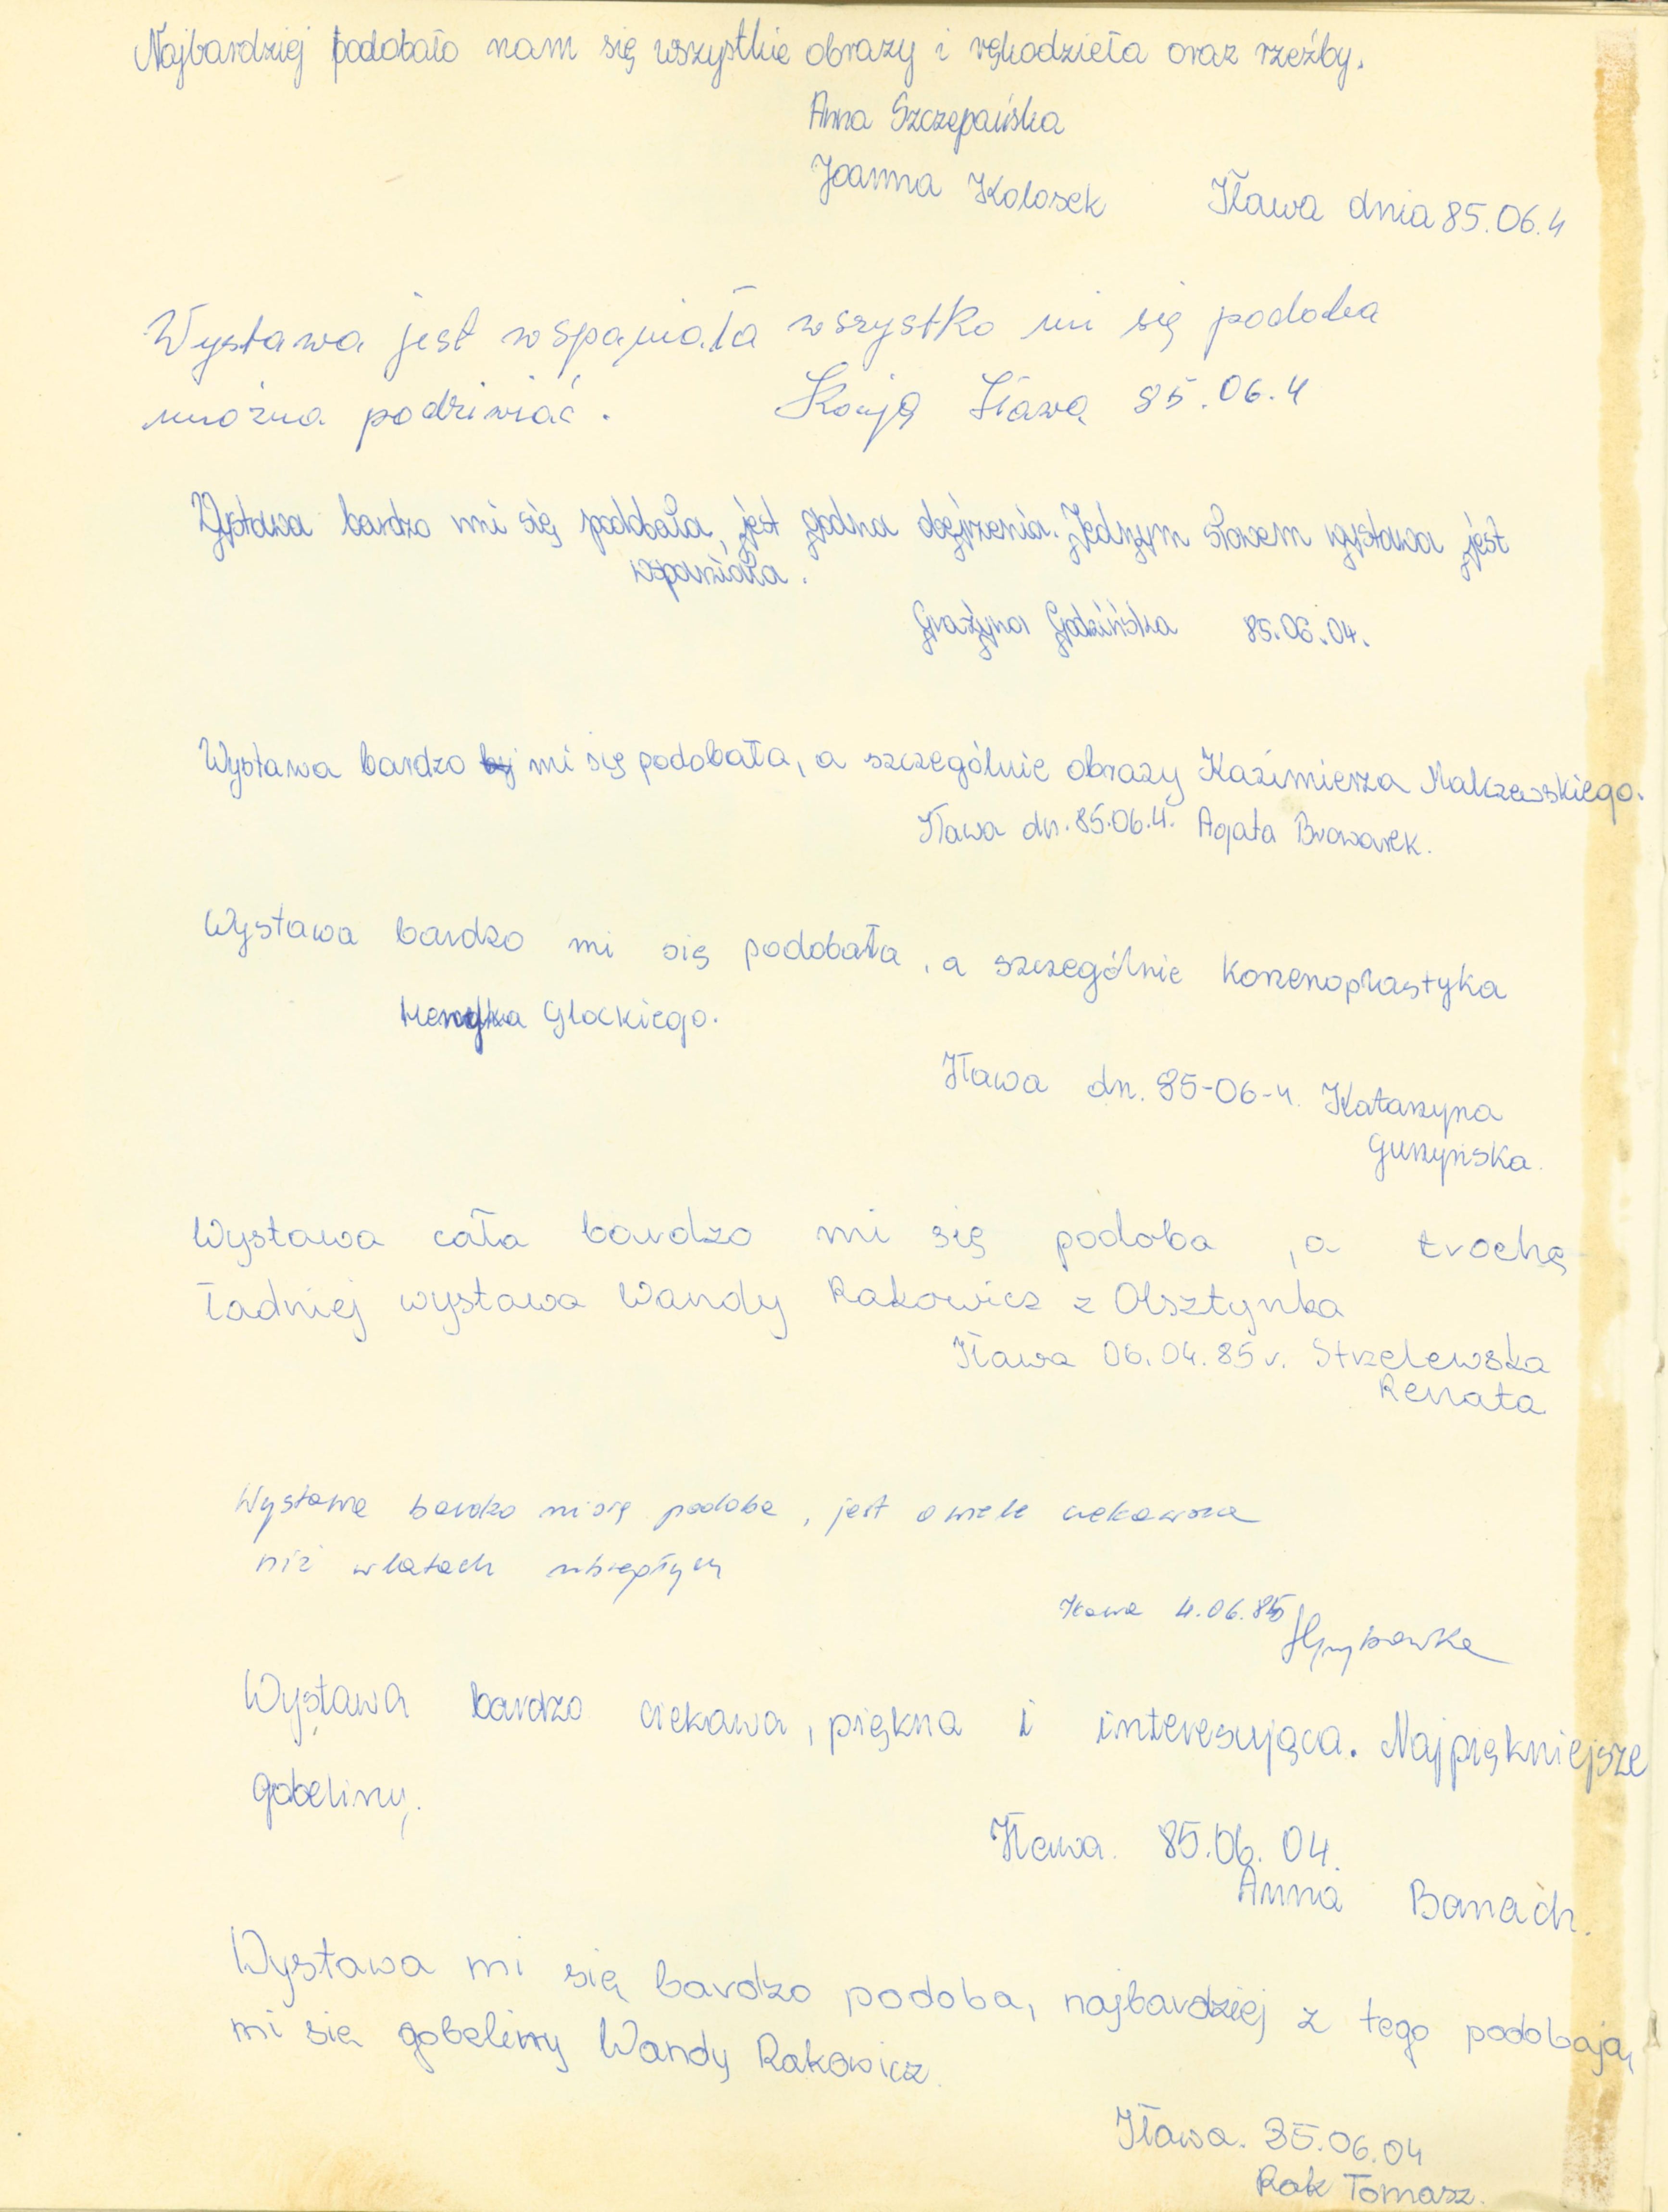 Najbardziej podobało nam się wszystkie obrazy i rękodzieła oraz rzeźby.
Anna Szczepańska
Joanna Kolosek Iława dnia 85.06.4
Wystawa jest wspaniała wszystko mi się podoba
można podziwiać. Iława 85.06.4
Wystawa bardzo mi się podobała, jest godna dojrzenia. Jednym słowem wystawa jest
wspaniała.
Grażyna 85.06.04.
Wystawa bardzo mi się podobała, a szczególnie obrazy Kazimierza Malczewskiego.
Iława dn. 85.06.4. Agata Browarek.
Wystawa bardzo mi się podobała, a szczególnie korzenoplastyka
Henryka Glockiego.
Iława dn. 85-06-4. Katarzyna
Gurzyńska.
Wystawa cała bardzo mi się podoba, a trochę
ładniej wystawa Wandy Rakowicz z Olsztynka
Iława 06.04.85 r. Strzelewska
Renata
Wystawa bardzo mi się podoba, jest o wiele ciekawsza
niż w latach ubiegłych
Iława 4.06.85
Wystawa bardzo ciekawa, piękna i interesująca. Najpiękniejsze
gobeliny.
Iława. 85.06.04.
Anna Banach.
Wystawa mi się bardzo podoba, najbardziej z tego podobają
mi się gobeliny Wandy Rakowicz.
Iława. 85.06.04
Rak Tomasz.